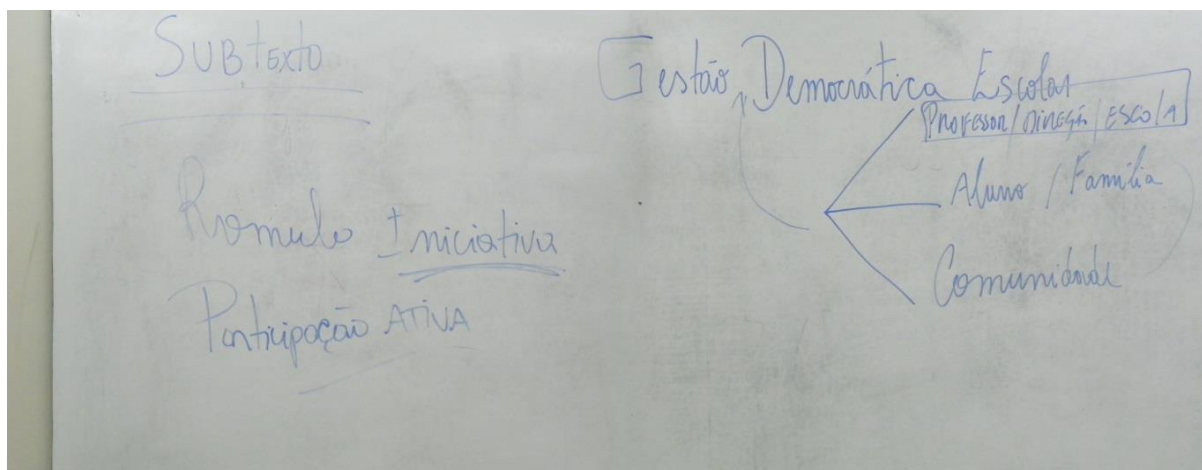 SUBTEXTO
Romulo Iniciativa
Participação ATIVA
Gestão Democrática Escolar
PROFESSOR / DIREÇÃO / ESCOLA
Aluno / Família
Comunidade